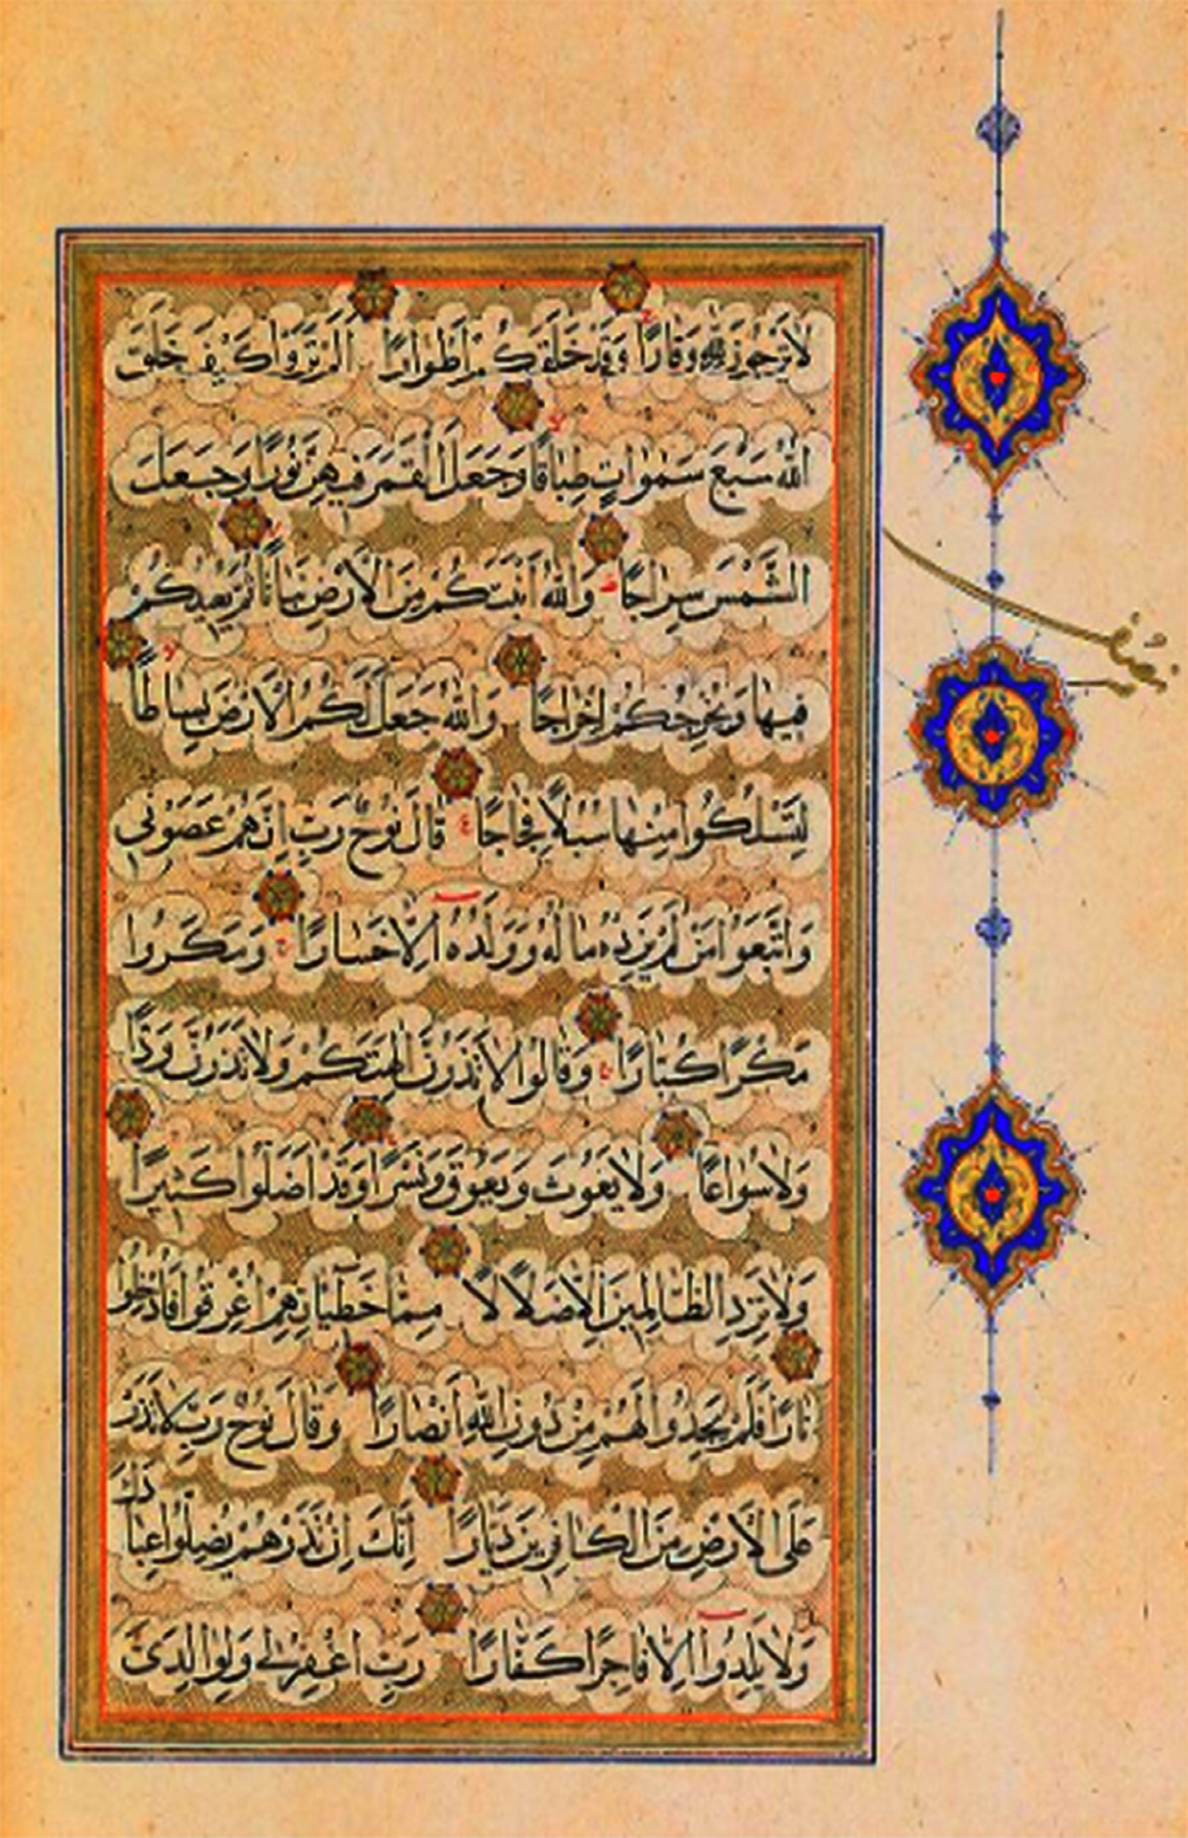 لَا تَرْجُونَ لِلَّهِ وَقَارًا وَقَدْ خَلَقَكُمْ أَطْوَارًا أَلَمْ تَرَوْا كَيْفَ خَلَقَ
اللَّهُ سَبْعَ سَمٰوَاتٍ طِبَاقًا وَجَعَلَ الْقَمَرَ فِيهِنَّ نُورًا وَجَعَلَ
الشَّمْسَ سِرَاجًا وَاللَّهُ أَنْبَتَكُمْ مِنَ الْأَرْضِ نَبَاتًا ثُمَّ يُعِيدُكُمْ
فِيهَا وَيُخْرِجُكُمْ إِخْرَاجًا وَاللَّهُ جَعَلَ لَكُمُ الْأَرْضَ بِسَاطًا
لِتَسْلُكُوا مِنْهَا سُبُلًا فِجَاجًا قَالَ نُوحٌ رَبِّ إِنَّهُمْ عَصَوْنِي
وَاتَّبَعُوا مَنْ لَمْ يَزِدْهُ مَالُهُ وَوَلَدُهُ إِلَّا خَسَارًا وَمَكَرُوا
مَكْرًا كُبَّارًا وَقَالُوا لَا تَذَرُنَّ آلِهَتَكُمْ وَلَا تَذَرُنَّ وَدًّا
وَلَا سُوَاعًا وَلَا يَغُوثَ وَيَعُوقَ وَنَسْرًا وَقَدْ أَضَلُّوا كَثِيرًا
وَلَا تَزِدِ الظَّالِمِينَ إِلَّا ضَلَالًا مِمَّا خَطِيئَاتِهِمْ أُغْرِقُوا فَأُدْخِلُوا
نَارًا فَلَمْ يَجِدُوا لَهُمْ مِنْ دُونِ اللَّهِ أَنْصَارًا وَقَالَ نُوحٌ رَبِّ لَا تَذَرْ
عَلَى الْأَرْضِ مِنَ الْكَافِرِينَ دَيَّارًا إِنَّكَ إِنْ تَذَرْهُمْ يُضِلُّوا عِبَادَكَ
وَلَا يَلِدُوا إِلَّا فَاجِرًا كَفَّارًا رَبِّ اغْفِرْ لِي وَلِوَالِدَيَّ